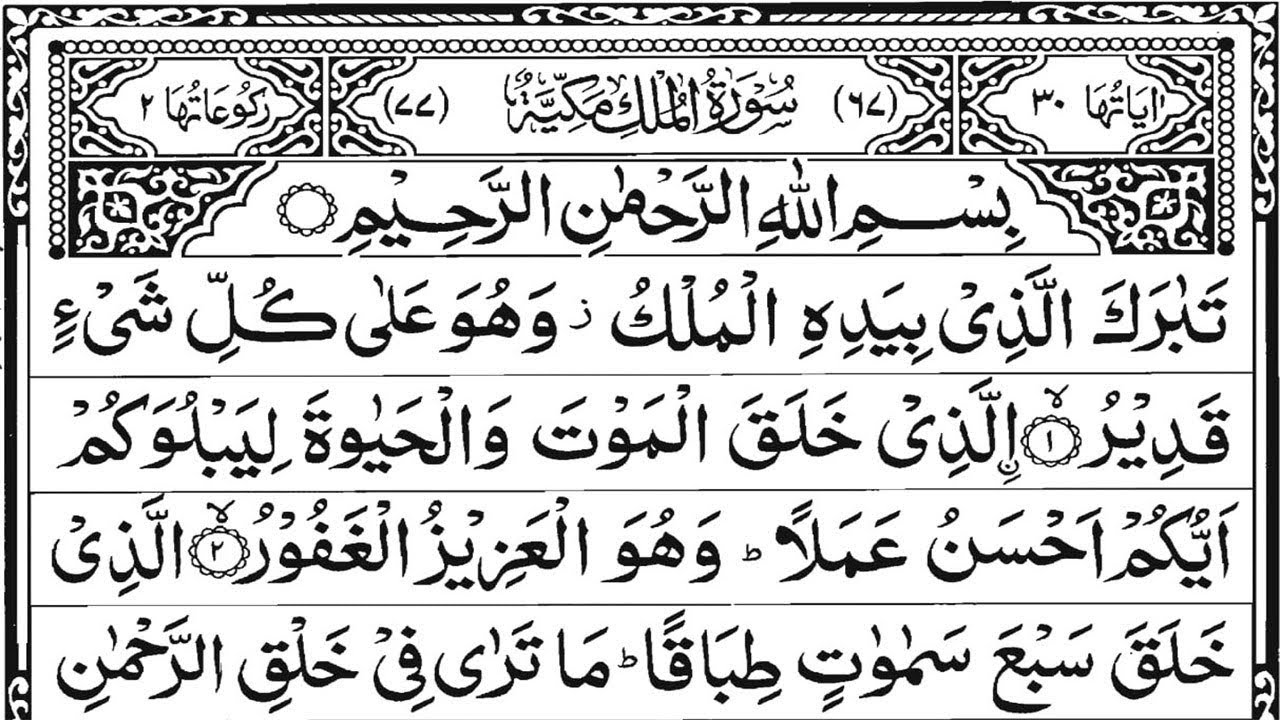 اٰيَاتُهَا ٣٠ (٦٧) سُوْرَةُ الْمُلْكِ مَكِّيَّةٌ (٧٧) رُكُوْعَاتُهَا ٢
بِسْمِ اللّٰهِ الرَّحْمٰنِ الرَّحِيْمِ
تَبٰرَكَ الَّذِىْ بِيَدِهِ الْمُلْكُ ز وَهُوَ عَلٰى كُلِّ شَىْءٍ
قَدِيْرُ ۙ﴿١﴾ اۨلَّذِىْ خَلَقَ الْمَوْتَ وَالْحَيٰوةَ لِيَبْلُوَكُمْ
اَيُّكُمْ اَحْسَنُ عَمَلًا ؕ وَهُوَ الْعَزِيْزُ الْغَفُوْرُ ۙ﴿٢﴾ الَّذِىْ
خَلَقَ سَبْعَ سَمٰوٰتٍ طِبَاقًا ؕ مَا تَرٰى فِىْ خَلْقِ الرَّحْمٰنِ